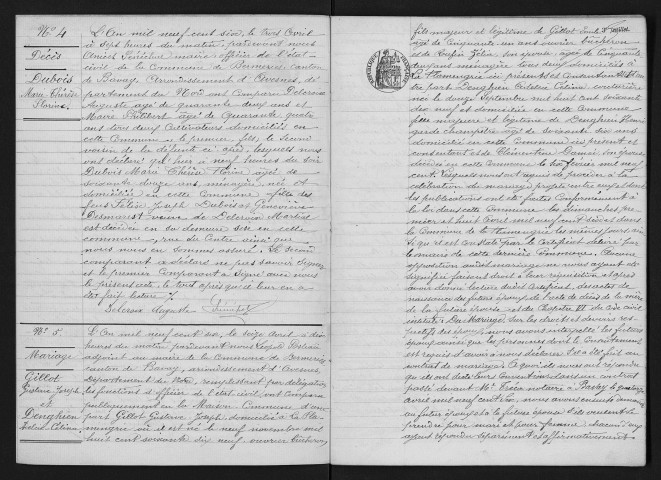 N° 4
Décès
Dubois
Marie Thérèse
Florine
L'An mil neuf cent six, le trois Avril
à sept heures du matin, pardevant nous
Sénéchal, maire officier de l'état
civil de la Commune de Bermeries, canton
de Bavay, arrondissement d'Avesnes, dé
partement du Nord ont comparu Delcroix
Auguste âgé de quarante deux ans et
Philibert âgé de quarante quatre
ans tous deux cultivateurs domiciliés en
cette commune, le premier fils, le second
voisin de la défunte ci-après, lesquels nous
ont déclaré qu'hier à neuf heures du soir
Dubois Marie Thérèse Florine, âgée de
soixante douze ans, ménagère, née et
domiciliée en cette commune, fille des
feus Félix Joseph Dubois et Geneviève
Desmarest veuve de Delcroix Martial
est décédée en sa demeure sise en cette
commune, rue du Centre ainsi que
nous nous en sommes assuré. Le second
comparant a déclaré ne pas savoir signer
et le premier comparant a signé avec nous
le présent acte, le tout après que leur en a
été fait lecture.
Delcroix Auguste Sénéchal
N° 5
Mariage
Gillot
Gustave Joseph
et
Denghien
Zulma Célina
L'An mil neuf cent six, le seize Avril à dix
heures du matin pardevant nous
adjoint au maire de la Commune de Bermeries
canton de Bavay, arrondissement d'Avesnes,
département du Nord, remplissant par délégation
les fonctions d'officier de l'état civil, ont comparu
publiquement en la Maison Commune d'une
part Gillot Gustave Joseph domicilié à la Fla
mengrie où il est né le neuf novembre mil
huit cent soixante dix neuf, ouvrier bûcheron,
fils majeur et légitime de Gillot
âgé de cinquante un ans ouvrier bûcheron
et de son épouse, âgée de cinquante
ans ménagère tous deux domiciliés à
la Flamengrie ici présents et consentants et d'autre
part Denghien Célina, couturière
née le douze Septembre mil huit cent soixante
dix neuf et domiciliée en cette commune
fille majeure et légitime de Denghien
garde champêtre âgé de soixante six ans
domicilié en cette commune ici présent et
consentant et de Clémentine son épouse
décédée en cette commune le février mil neuf
cent. Lesquels nous ont requis de procéder à la
célébration du mariage projeté entre eux et dont
les publications ont été faites conformément à
la loi dans cette commune les dimanches pre
mier et huit Avril mil neuf cent six et dans la
Commune de la Flamengrie les mêmes jours ainsi
qu'il est constaté par le certificat délivré par
le maire de cette dernière Commune. Aucune
opposition audit mariage ne nous ayant été
signifiée faisant droit à leur réquisition et après
avoir donné lecture dudit certificat, des actes de
naissance des futurs époux, de l'acte de décès de la mère
de la future épouse et du chapitre VI du code civil
intitulé : Du Mariage, sur les droits et devoirs res
pectifs des époux, nous avons interpellé les futurs
époux ainsi que les personnes dont le consentement
est requis d'avoir à nous déclarer s'il a été fait un
contrat de mariage, à quoi ils nous ont répondu
qu'ils ont réglé leurs conventions dans un contrat
passé devant Me notaire à Bavay le
avril mil neuf cent six, nous avons ensuite demandé
au futur époux et à la future épouse s'ils veulent se
prendre pour mari et pour femme ; chacun d'eux
ayant répondu séparément et affirmativement,